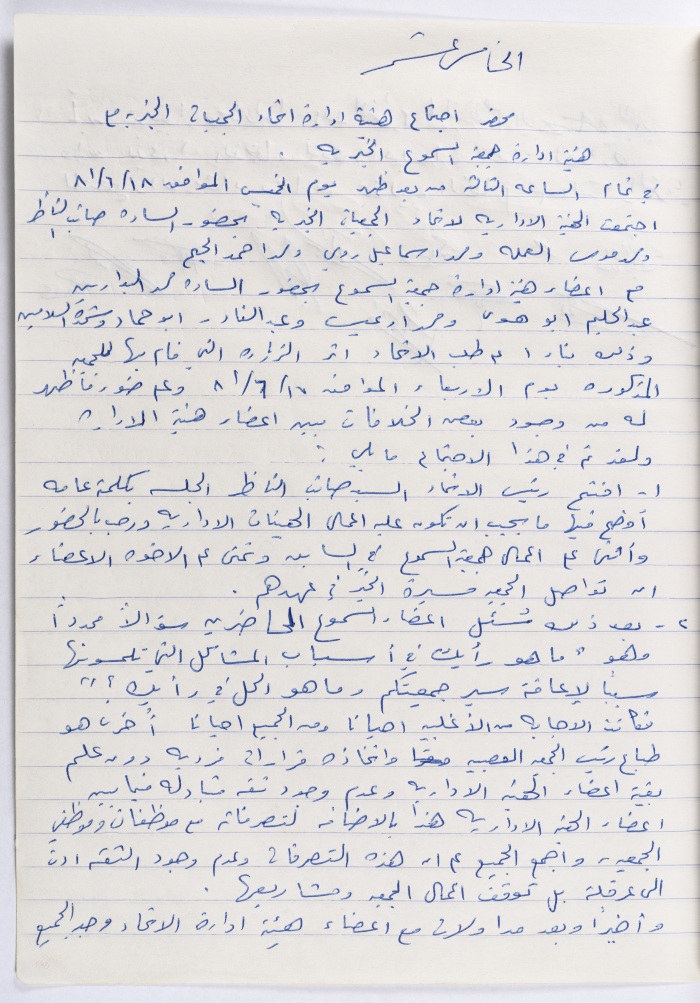 الخامس عشر
محضر اجتماع هيئة ادارة اتحاد الجمعيات الخيرية مع
هيئة ادارة جمعية السموع الخيرية .
في تمام الساعه الثالثة من بعد ظهر يوم الخميس الموافق ٨١/٦/١٨
اجتمعت الهيئة الاداريه لاتحاد الجمعيات الخيريه بحضور الساده صائب الناظر
ومحمد موسى العمله ومحمد اسماعيل رومي ومحمد احمد الحيح
مع اعضاء هيئة ادارة جمعية السموع بحضور الساده محمد البدارين
عبد الحليم ابو هوى ومحمد ادعيس وعبد القادر ابو حماد وشحدة السلامين
وذلك بناءا على طلب الاتحاد اثر الزياره التي قام بها للجمعيه
المذكوره يوم الاربعاء الموافق ٨١/٦/١٧ وعلى ضوء ما ظهر
له من وجود بعض الخلافات بين اعضاء هيئة الاداره
ولقد تم في هذا الاجتماع ما يلي :
١- افتتح رئيس الاتحاد السيد صائب الناظر الجلسه بكلمة عامه
أوضح فيها ما يجب ان تكون عليه اعمال الهيئات الاداريه ورحب بالحضور
وأثنى على اعمال جمعية السموع في السابق وتمنى على الاخوه الاعضاء
ان تواصل الجمعيه مسيرة الخير في عهدهم .
٢- بعد ذلك سُئل اعضاء السموع الحاضرين سؤالاً محدداً
وهو " ما هو رأيك في أسباب المشاكل التي تلمسونها
سبباً لإعاقة سير جمعيتكم وما هو الحل في رأيك ؟ "
فكانت الاجابه من الأغلبيه احيانا ومن الجميع احيانا أُخرى هو
طباع رئيس الجمعيه العصبيه واتخاذه قرارات فرديه دون علم
بقية اعضاء الهيئه الاداريه وعدم وجود ثقه متبادله فيما بين
اعضاء الهيئه الاداريه هذا بالاضافه لتصرفاته مع موظفات وموظفي
الجمعيه ، واجمع الجميع على ان هذه التصرفات وعدم وجود الثقه ادت
الى عرقلة بل توقف اعمال الجمعيه ومشاريعها .
وأخيراً وبعد مداولات مع اعضاء هيئة ادارة الاتحاد وجد الجميع